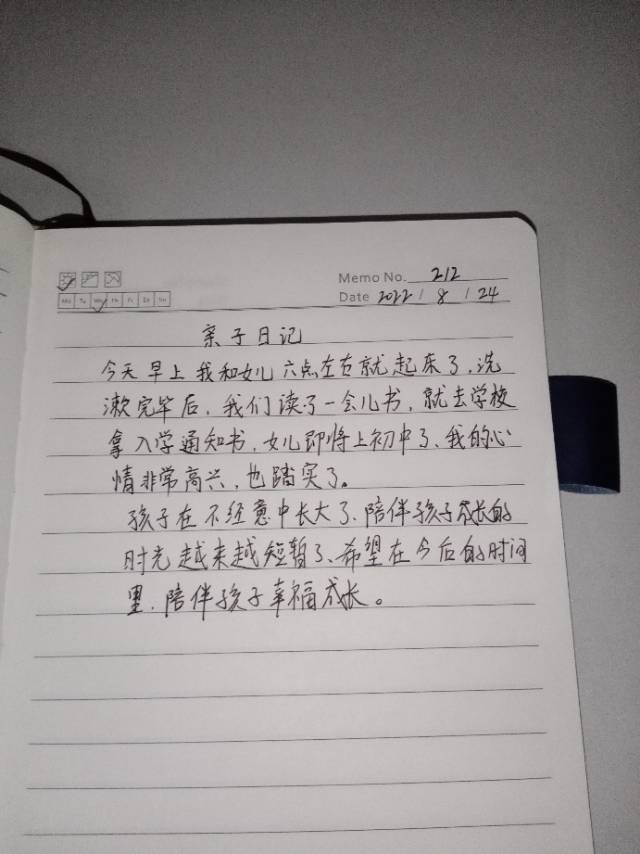 Memo No. 212
Mo Tu We Th Fr Sa Su
Date 2022 / 8 / 24
亲子日记
今天早上我和女儿六点左右就起床了,洗
漱完毕后,我们读了一会儿书,就去学校
拿入学通知书,女儿即将上初中了、我的心
情非常高兴,也踏实了。
孩子在不经意中长大了、陪伴孩子成长的
时光越来越短暂了、希望在今后的时间
里、陪伴孩子幸福成长。